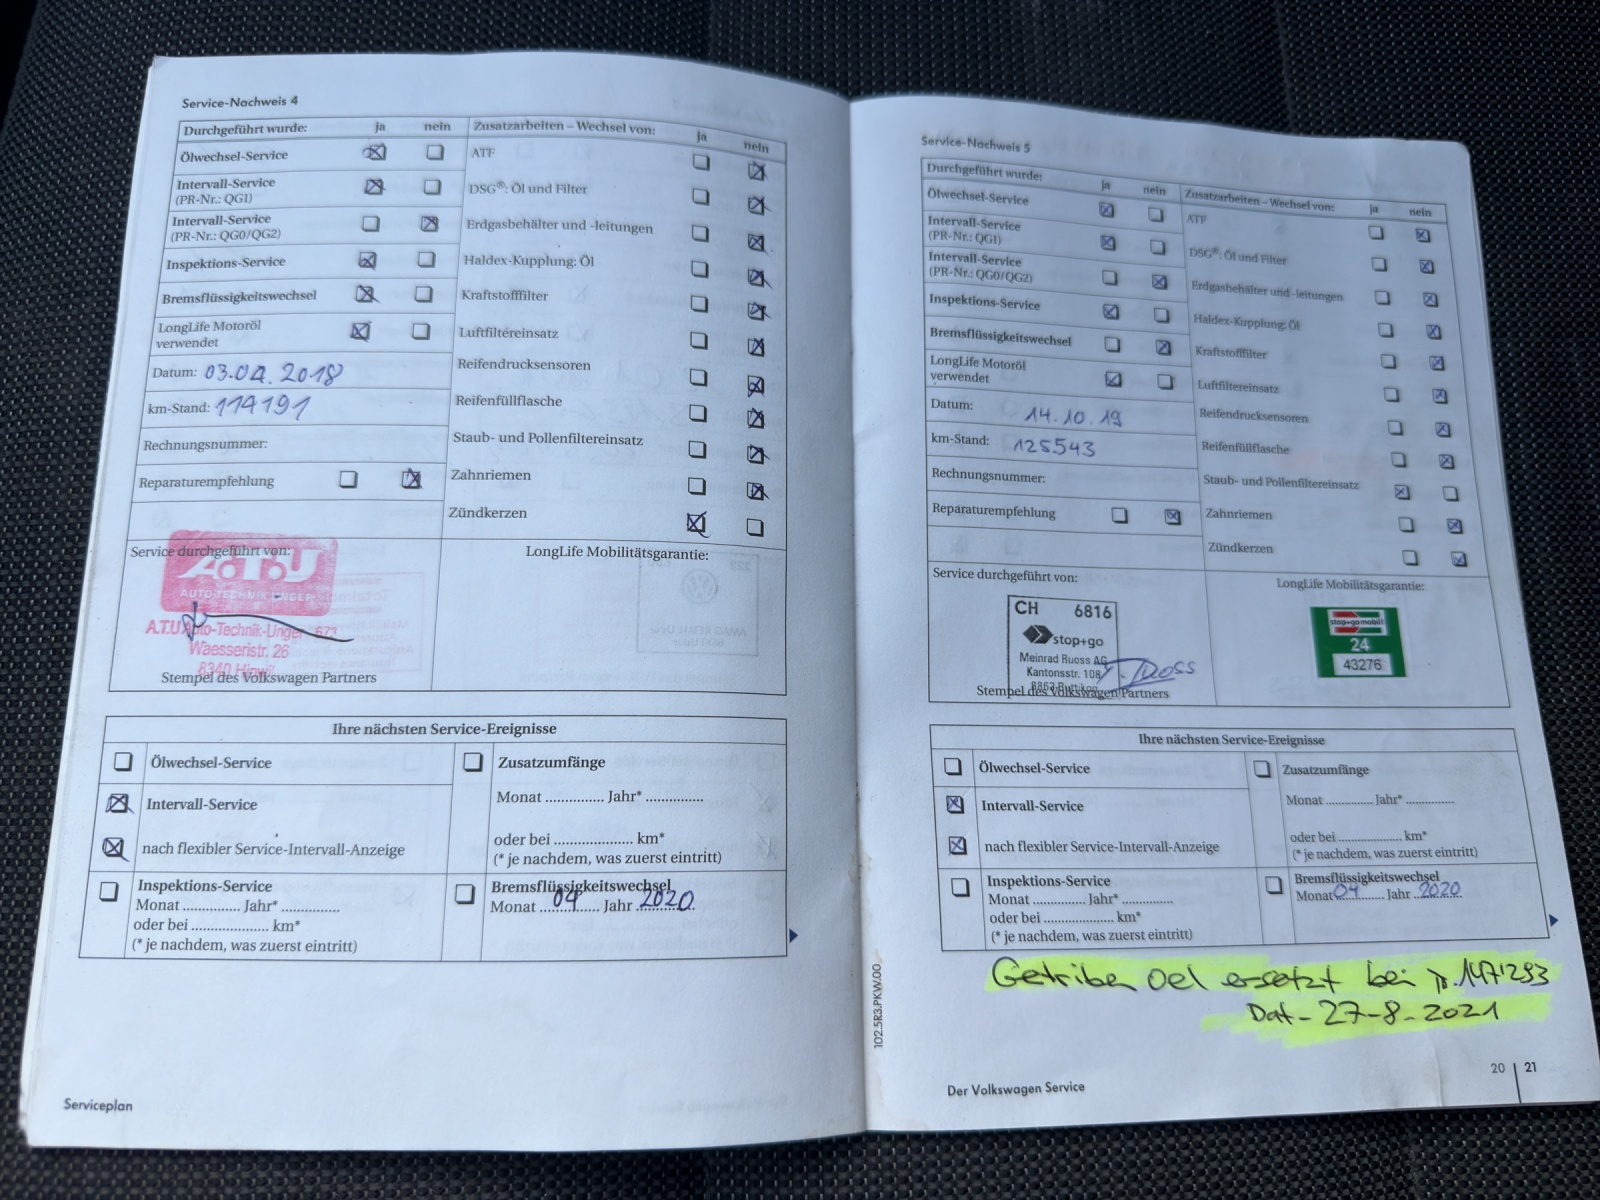 Service-Nachweis 4
Durchgeführt wurde: ja nein
Ölwechsel-Service
Intervall-Service
(PR-Nr.: QG1)
Intervall-Service
(PR-Nr.: QG0/QG2)
Inspektions-Service
Bremsflüssigkeitswechsel
LongLife Motoröl
verwendet
Datum: 03.04.2018
km-Stand: 114191
Rechnungsnummer:
Reparaturempfehlung
Zusatzarbeiten – Wechsel von: ja nein
ATF
DSG®: Öl und Filter
Erdgasbehälter und -leitungen
Haldex-Kupplung: Öl
Kraftstofffilter
Luftfiltereinsatz
Reifendrucksensoren
Reifenfüllflasche
Staub- und Pollenfiltereinsatz
Zahnriemen
Zündkerzen
Service durchgeführt von:
A.T.U
AUTO-TECHNIK UNGER
A.T.U Auto-Technik-Unger 673
Waesseristr. 26
8340 Hinwil
Stempel des Volkswagen Partners
LongLife Mobilitätsgarantie:
Ihre nächsten Service-Ereignisse
Ölwechsel-Service
Intervall-Service
nach flexibler Service-Intervall-Anzeige
Inspektions-Service
Monat .............. Jahr* ..............
oder bei .................... km*
(* je nachdem, was zuerst eintritt)
Zusatzumfänge
Monat .............. Jahr* ..............
oder bei .................... km*
(* je nachdem, was zuerst eintritt)
Bremsflüssigkeitswechsel
Monat 04 Jahr 2020
Serviceplan
Service-Nachweis 5
Durchgeführt wurde: ja nein
Ölwechsel-Service
Intervall-Service
(PR-Nr.: QG1)
Intervall-Service
(PR-Nr.: QG0/QG2)
Inspektions-Service
Bremsflüssigkeitswechsel
LongLife Motoröl
verwendet
Datum: 14.10.19
km-Stand: 125543
Rechnungsnummer:
Reparaturempfehlung
Zusatzarbeiten – Wechsel von: ja nein
ATF
DSG®: Öl und Filter
Erdgasbehälter und -leitungen
Haldex-Kupplung: Öl
Kraftstofffilter
Luftfiltereinsatz
Reifendrucksensoren
Reifenfüllflasche
Staub- und Pollenfiltereinsatz
Zahnriemen
Zündkerzen
Service durchgeführt von:
CH 6816
stop+go
Meinrad Ruoss AG
Kantonsstr. 108
8863 Buttikon
Stempel des Volkswagen Partners
LongLife Mobilitätsgarantie:
stop+go mobil
24
43276
Ihre nächsten Service-Ereignisse
Ölwechsel-Service
Intervall-Service
nach flexibler Service-Intervall-Anzeige
Inspektions-Service
Monat .............. Jahr* ..............
oder bei .................... km*
(* je nachdem, was zuerst eintritt)
Zusatzumfänge
Monat .............. Jahr* ..............
oder bei .................... km*
(* je nachdem, was zuerst eintritt)
Bremsflüssigkeitswechsel
Monat 04 Jahr 2020
Getribe Oel ersetzt bei 147'293
Dat- 27-8-2021
102.5R3.PKW.00
Der Volkswagen Service
20 | 21